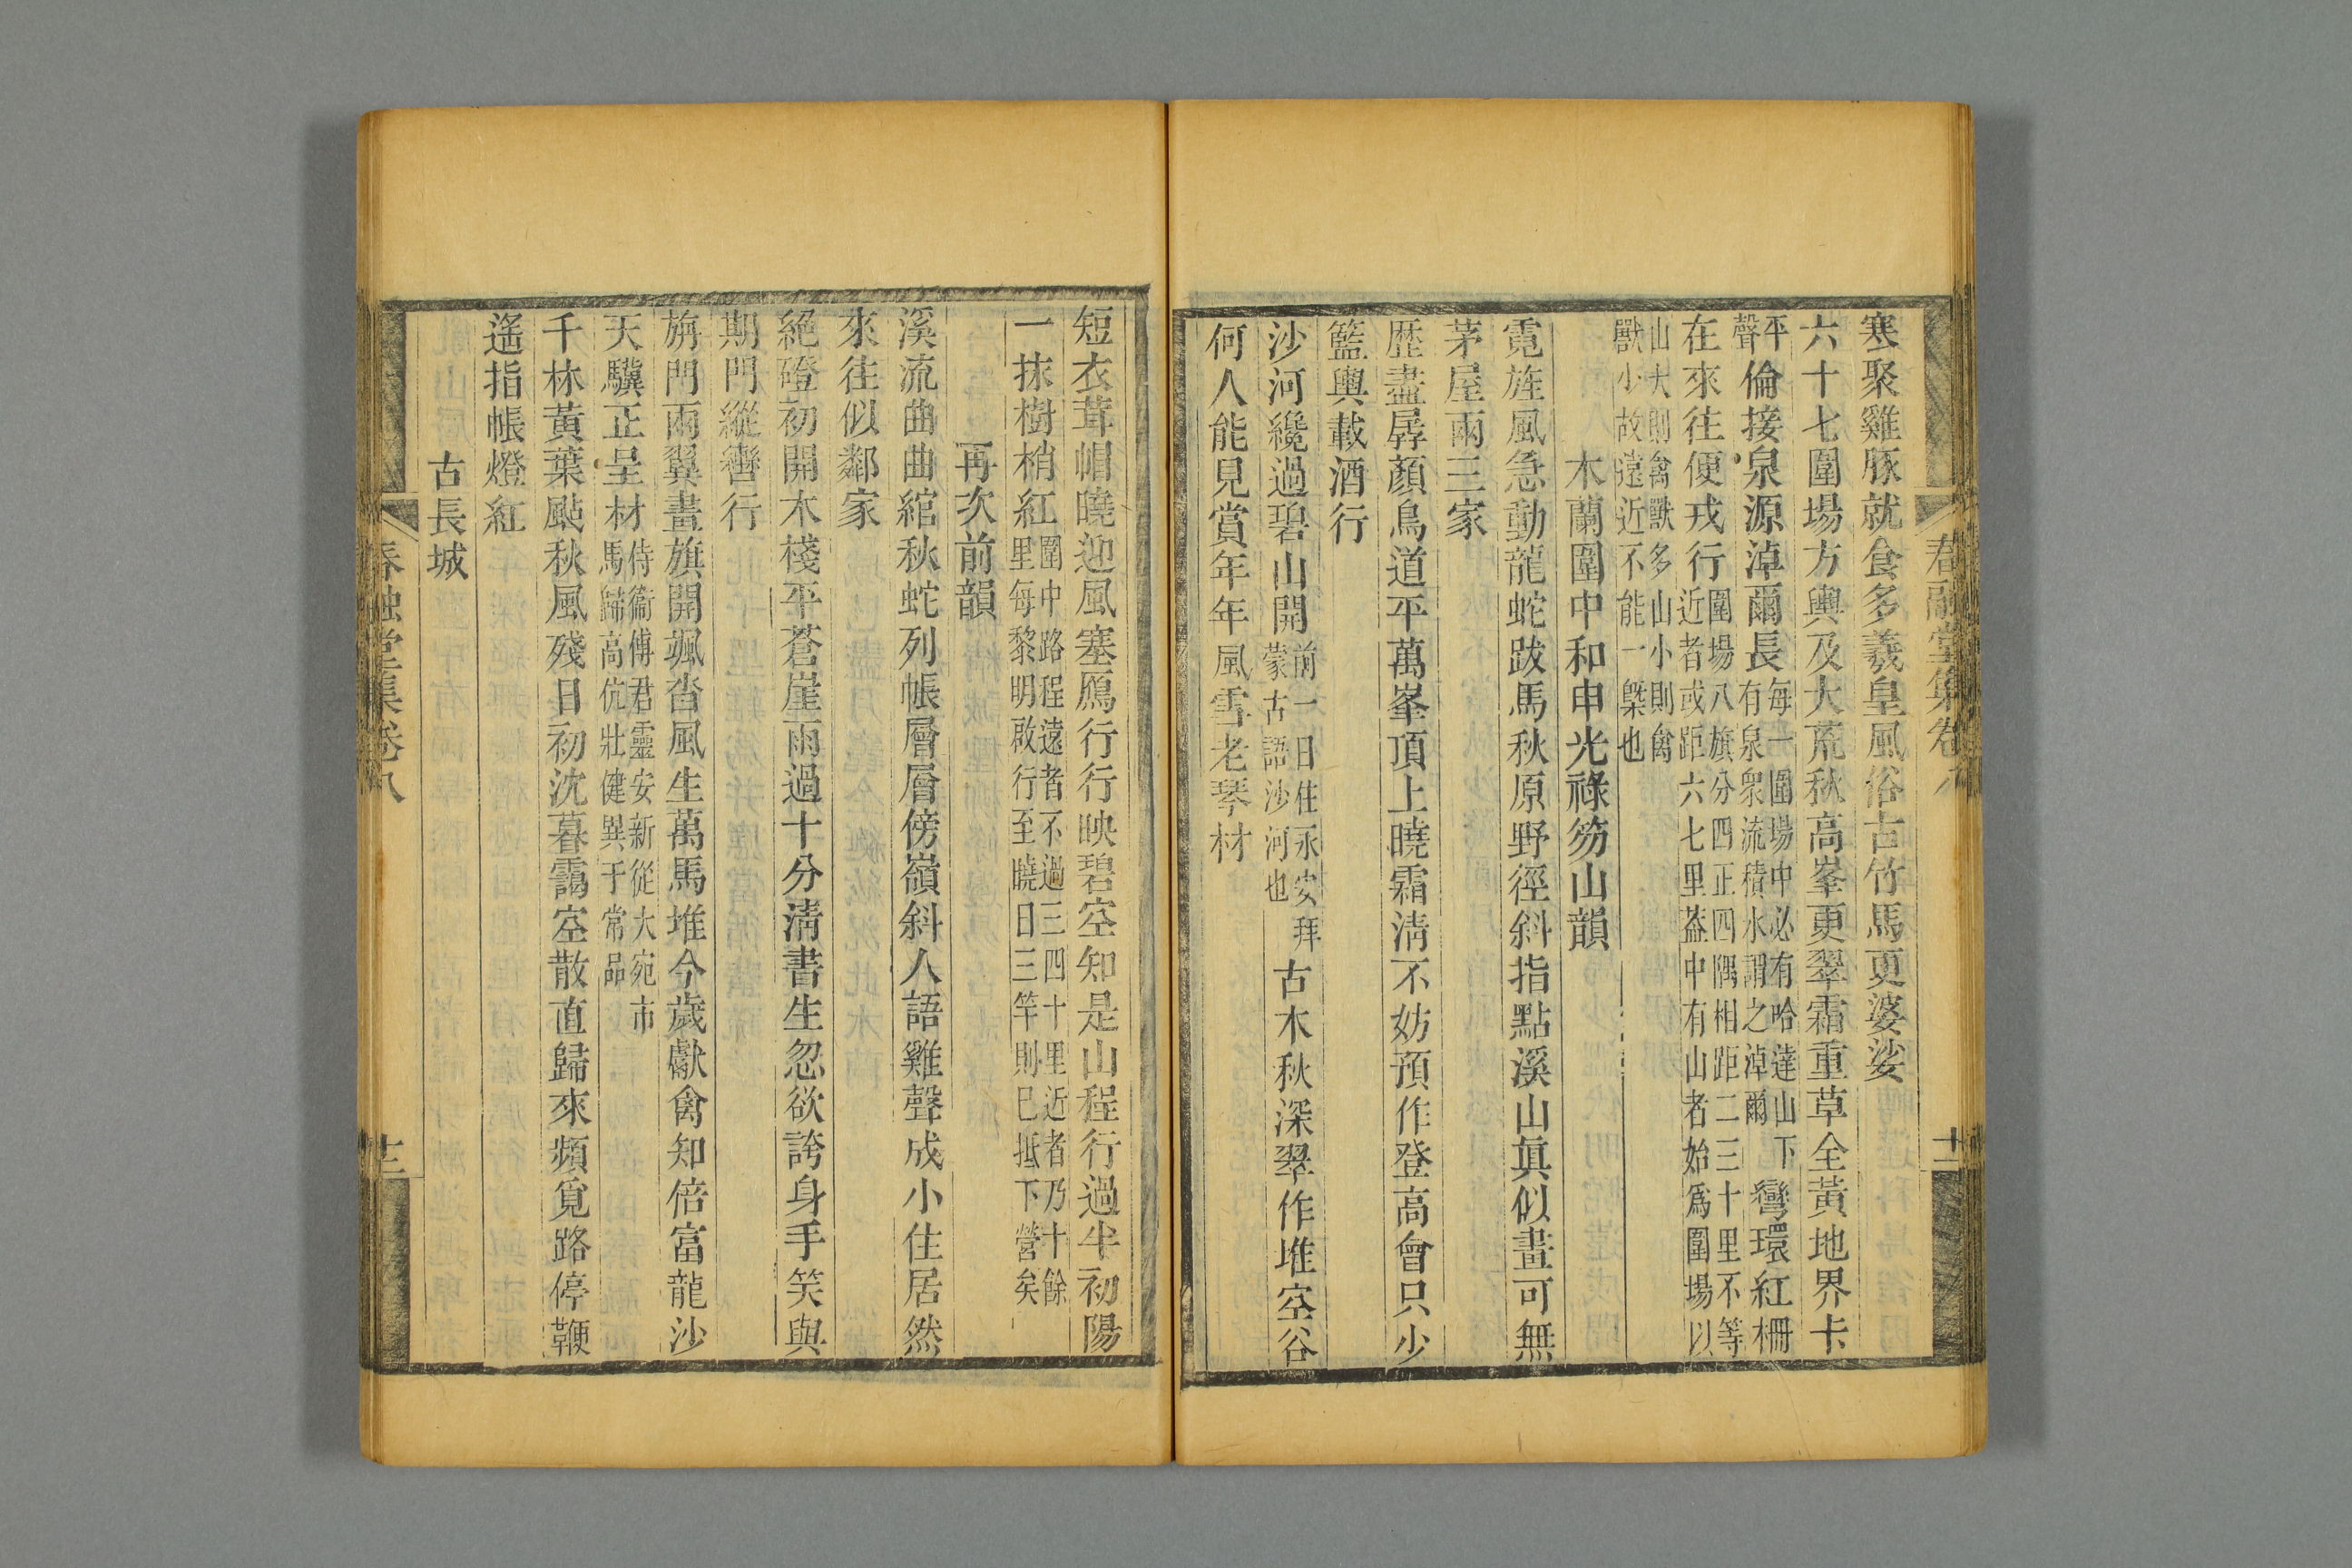 春融堂集卷八
十二
寒聚雞豚就食多羲皇風俗古竹馬更婆娑
六十七圍場方輿及大荒秋高峯更翠霜重草全黃地界卡
平聲倫接泉源淖爾長每一圍場中必有哈達山下有泉衆流積水謂之淖爾彎環紅柵
在來往便戎行圍場八旗分四正四隅相距二三十里不等近者或距六七里葢中有山者始爲圍場以
山大則禽獸多山小則禽獸小故遠近不能一槩也
木蘭圍中和申光祿笏山韻
霓旌風急動龍蛇跋馬秋原野徑斜指點溪山眞似畫可無
茅屋兩三家
歴盡孱顏鳥道平萬峯頂上曉霜淸不妨預作登高會只少
籃輿載酒行
沙河纔過碧山開前一日住永安拜蒙古語沙河也古木秋深翠作堆空谷
何人能見賞年年風雪老琴材
短衣茸帽曉迎風塞鴈行行映碧空知是山程行過半初陽
一抹樹梢紅圍中路程遠者不過三四十里近者乃十餘里每黎明啟行至曉日三竿則已抵下營矣
再次前韻
溪流曲曲綰秋蛇列帳層層傍嶺斜人語雞聲成小住居然
來往似鄰家
絕磴初開木棧平蒼崖雨過十分淸書生忽欲誇身手笑與
期門縱轡行
旃門兩翼畫旗開颯沓風生萬馬堆今歲獻禽知倍富龍沙
天驥正呈材侍衞傅君靈安新從大宛市馬歸高伉壯健異于常品
千林黃葉颭秋風殘日初沈暮靄空散直歸來頻覓路停鞭
遙指帳燈紅
古長城
春融堂集卷八
十三